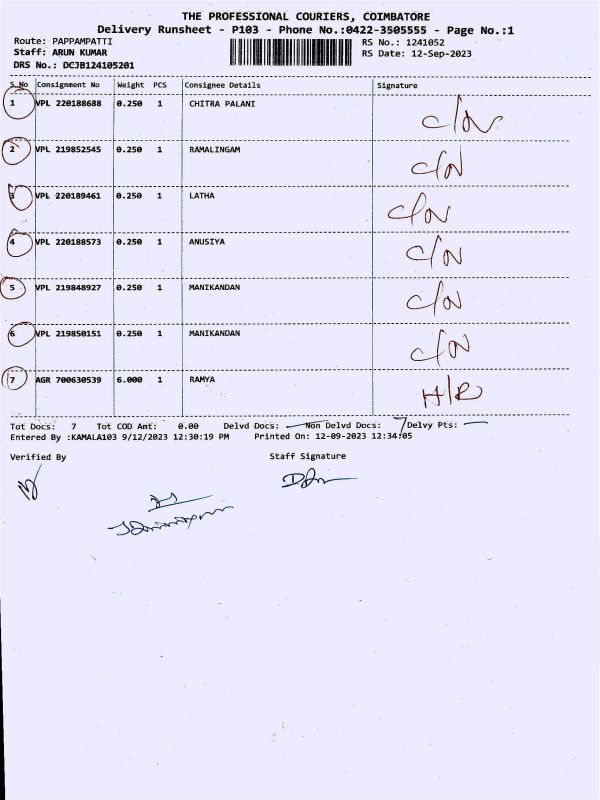 THE PROFESSIONAL COURIERS, COIMBATORE
Delivery Runsheet - P103 - Phone No.:0422-3505555 - Page No.:1
Route: PAPPAMPATTI RS No.: 1241052
Staff: ARUN KUMAR RS Date: 12-Sep-2023
DRS No.: DCJB124105201
S.No Consignment No Weight PCS Consignee Details Signature
1 VPL 220188688 0.250 1 CHITRA PALANI C/N
2 VPL 219852545 0.250 1 RAMALINGAM C/N
3 VPL 220189461 0.250 1 LATHA C/N
4 VPL 220188573 0.250 1 ANUSIYA C/N
5 VPL 219848927 0.250 1 MANIKANDAN C/N
6 VPL 219850151 0.250 1 MANIKANDAN C/N
7 AGR 700630539 6.000 1 RAMYA H/R
Tot Docs: 7 Tot COD Amt: 0.00 Delvd Docs: — Non Delvd Docs: 7 Delvy Pts: —
Entered By :KAMALA103 9/12/2023 12:30:19 PM Printed On: 12-09-2023 12:34:05
Verified By Staff Signature